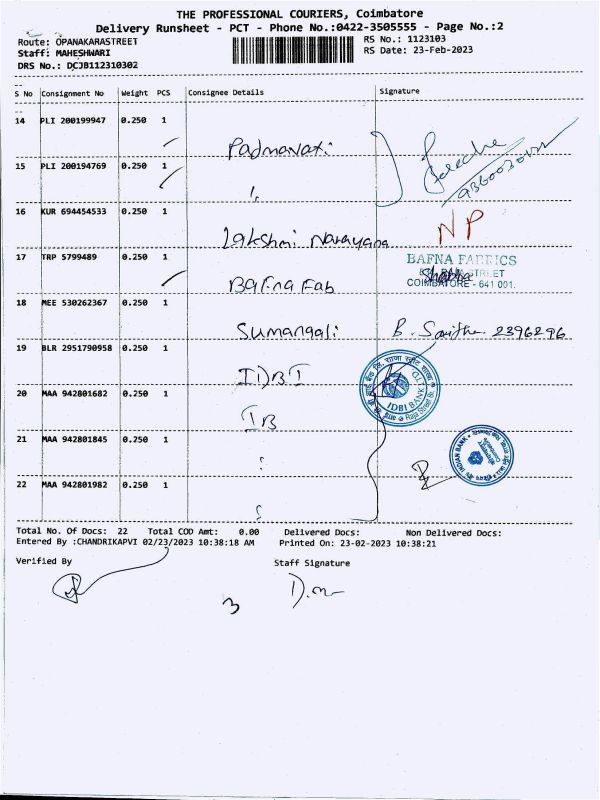 THE PROFESSIONAL COURIERS, Coimbatore
Delivery Runsheet - PCT - Phone No.:0422-3505555 - Page No.:2
Route: OPANAKARASTREET
RS No.: 1123103
Staff: MAHESHWARI
RS Date: 23-Feb-2023
DRS No.: DCJB112310302
S No Consignment No Weight PCS Consignee Details Signature
14 PLI 200199947 0.250 1
Padmavati
15 PLI 200194769 0.250 1
16 KUR 694454533 0.250 1 NP
Lakshmi Narayana
17 TRP 5799489 0.250 1 BAFNA FABRICS
STREET
COIMBATORE - 641 001.
Bafna Fab
18 MEE 530262367 0.250 1
Sumangali B. 2396296
19 BLR 2951790958 0.250 1
IDBI
IDBI BANK
20 MAA 942801682 0.250 1
IB
21 MAA 942801845 0.250 1
INDIAN BANK
22 MAA 942801982 0.250 1
Total No. Of Docs: 22 Total COD Amt: 0.00 Delivered Docs: Non Delivered Docs:
Entered By :CHANDRIKAPVI 02/23/2023 10:38:18 AM Printed On: 23-02-2023 10:38:21
Verified By Staff Signature
3